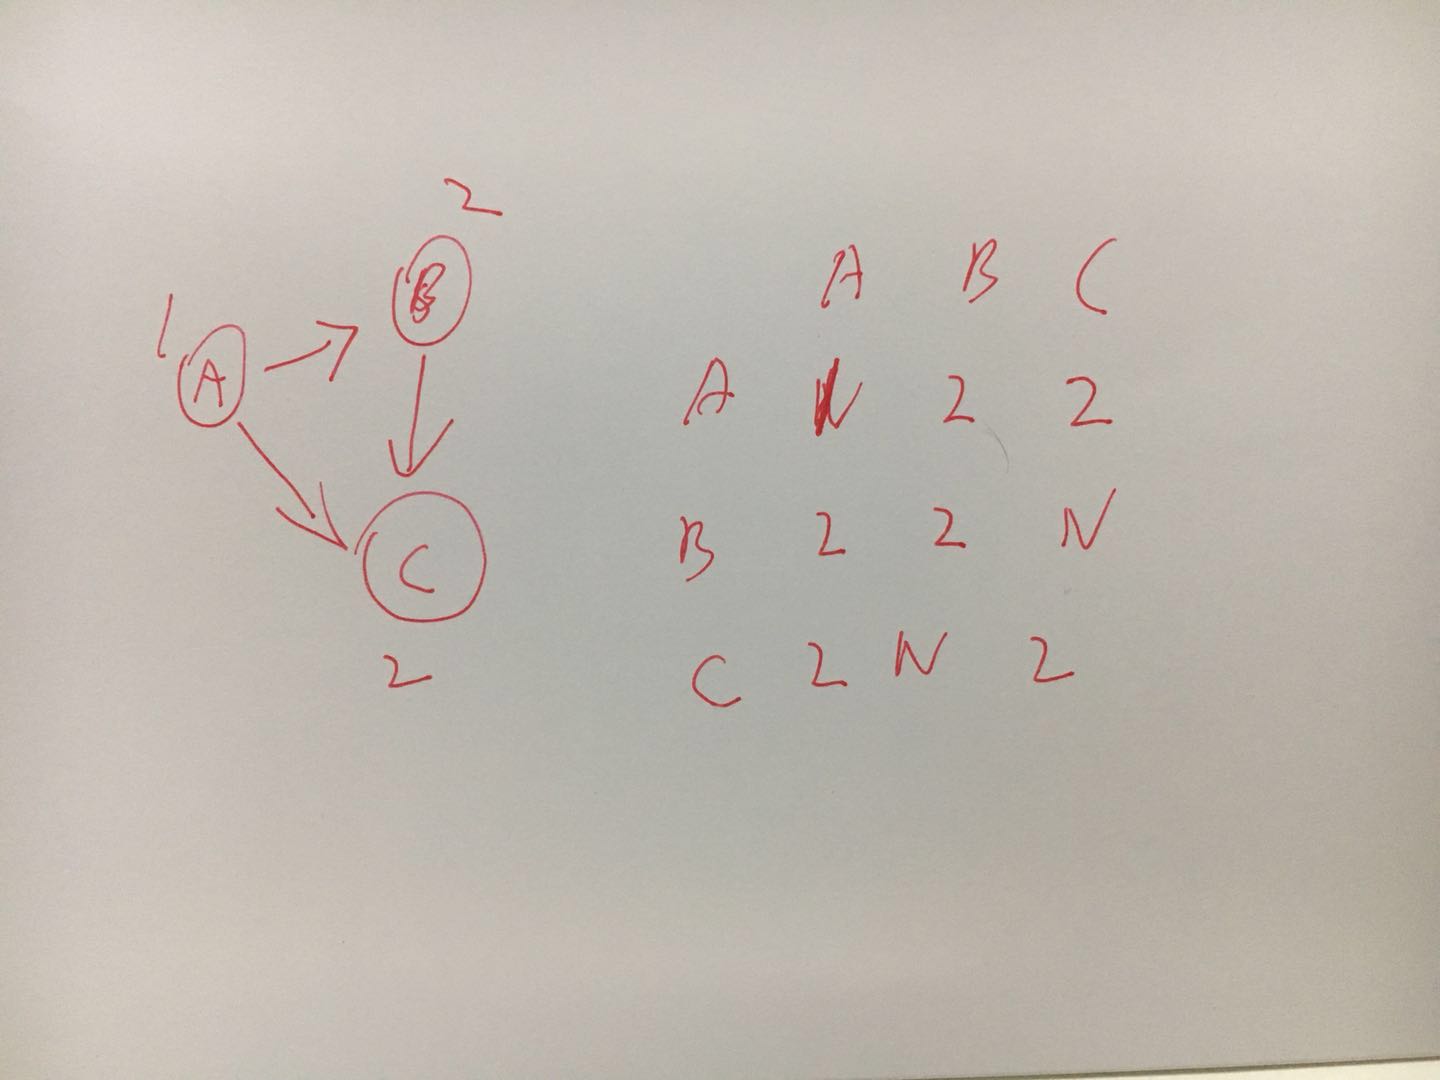 2
B
1
A
C
2
A B C
A N 2 2
B 2 2 N
C 2 N 2